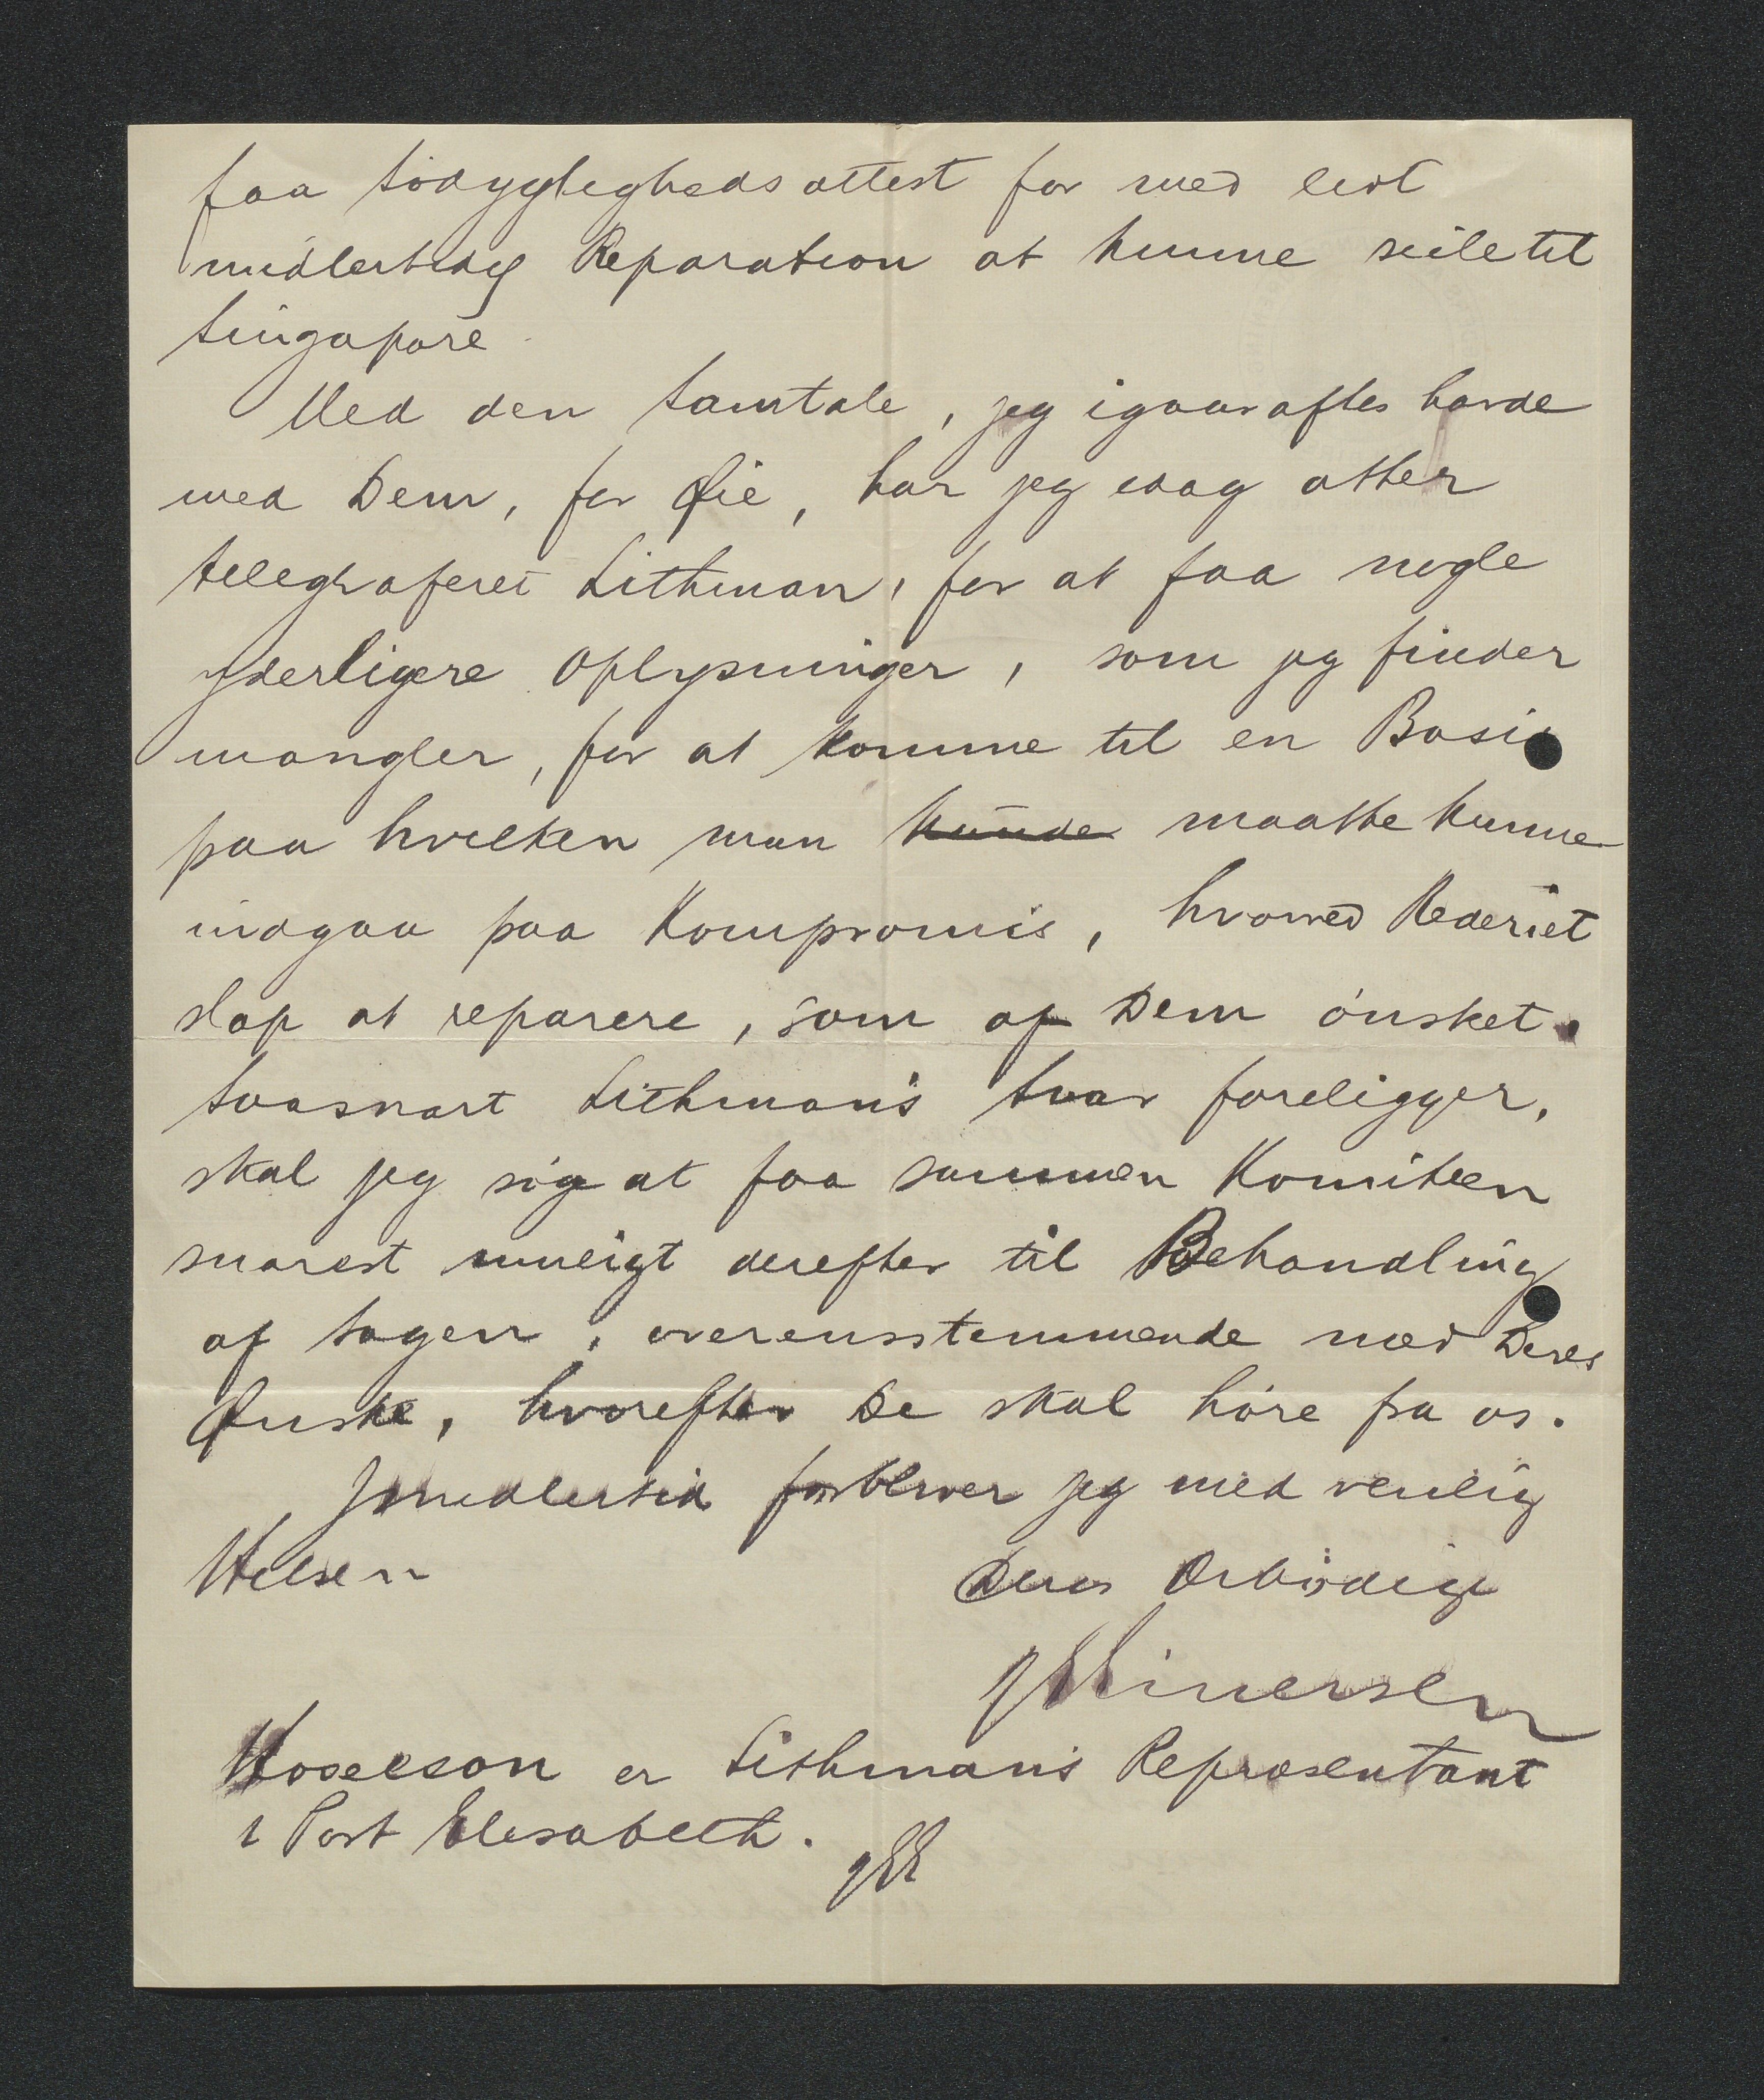 faa Sødygtighedsattest for med lidt
midlertidig Reparation at kunne seile til
Singapore.
Med den Samtale, jeg igaaraftes havde
med Dem, for Øie, har jeg idag atter
telegraferet Lithman, for at faa nogle
yderligere Oplysninger, som jeg finder
mangler, for at komme til en Basis
paa hvilken man kunde maatte kunne
indgaa paa Kompromis, hvorved Rederiet
slap at reparere, som af Dem ønsket.
Saasnart Lithman's Svar foreligger,
skal jeg søge at faa sammen Komiteen
snarest muligt derefter til Behandling
af Sagen, overensstemmende med Deres
Ønske, hvorefter De skal høre fra os.
Imidlertid forbliver jeg med venlig
Hilsen
Deres Ærbødige
Einersen
er Lithman's Repræsentant
i Port Elisabeth.